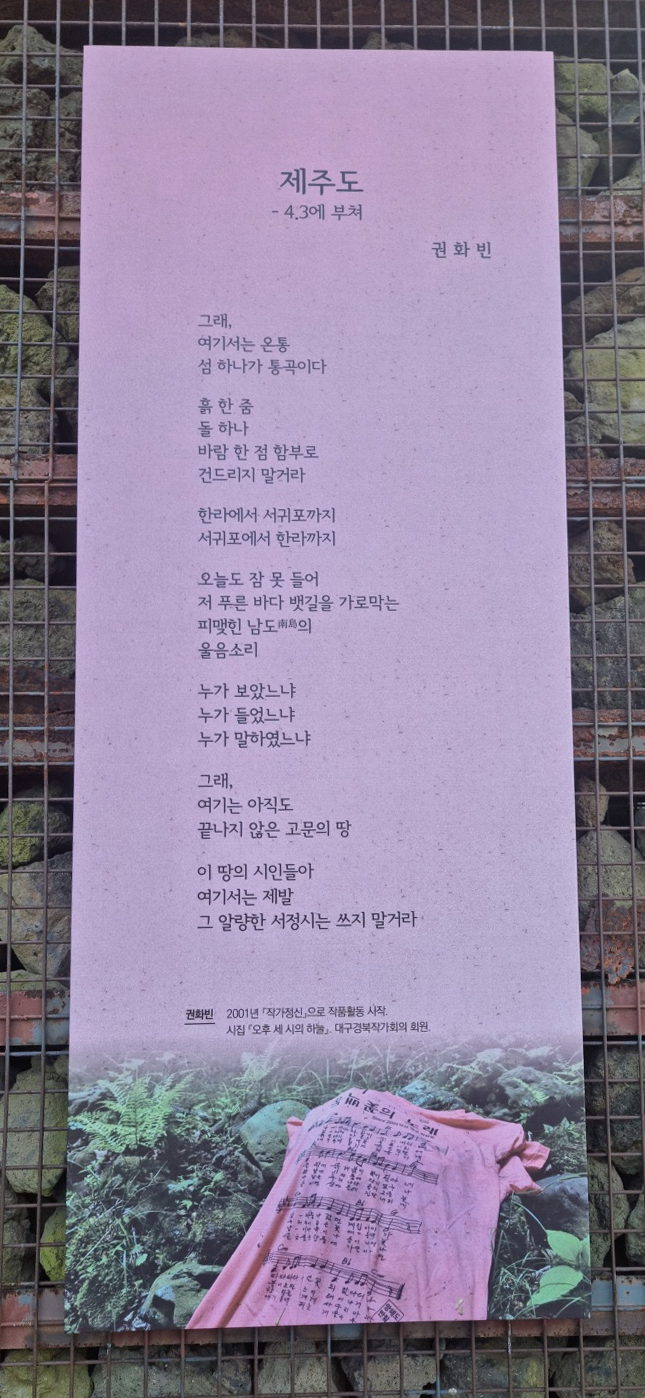 제주도
- 4.3에 부쳐
권화빈
그래,
여기서는 온통
섬 하나가 통곡이다
흙 한 줌
돌 하나
바람 한 점 함부로
건드리지 말거라
한라에서 서귀포까지
서귀포에서 한라까지
오늘도 잠 못 들어
저 푸른 바다 뱃길을 가로막는
피맺힌 남도南島의
울음소리
누가 보았느냐
누가 들었느냐
누가 말하였느냐
그래,
여기는 아직도
끝나지 않은 고문의 땅
이 땅의 시인들아
여기서는 제발
그 알량한 서정시는 쓰지 말거라
권화빈 2001년 「작가정신」으로 작품활동 시작.
시집 『오후 세 시의 하늘』. 대구경북작가회의 회원.
의 노래